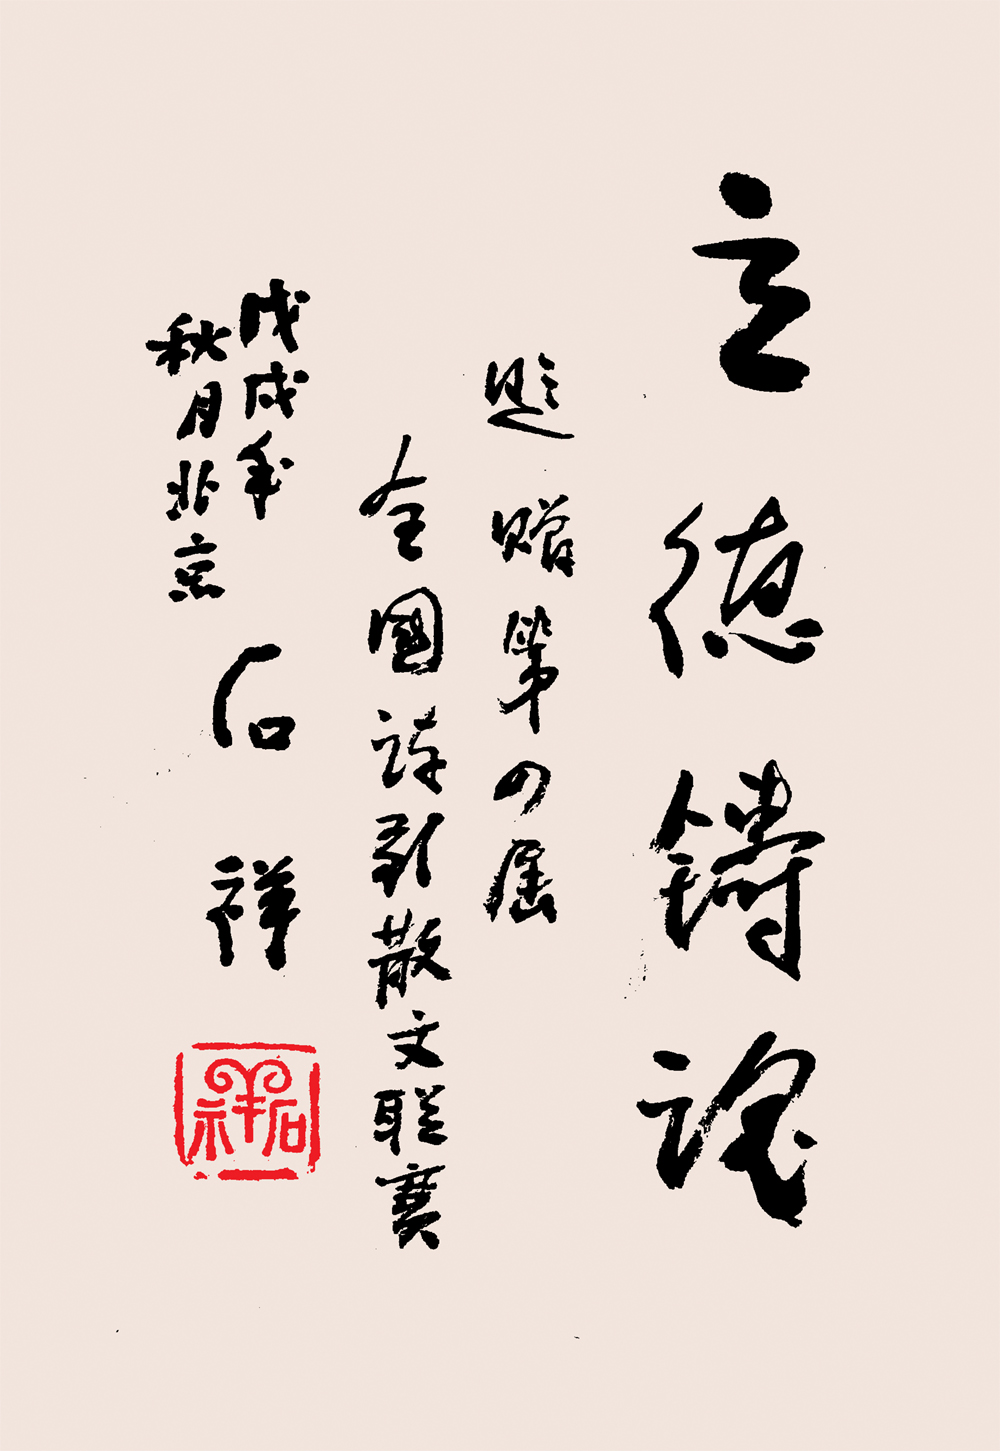 立德鑄魂
题赠第四届
全國诗歌散文联赛
戊戌年
秋月北京
石祥
石祥